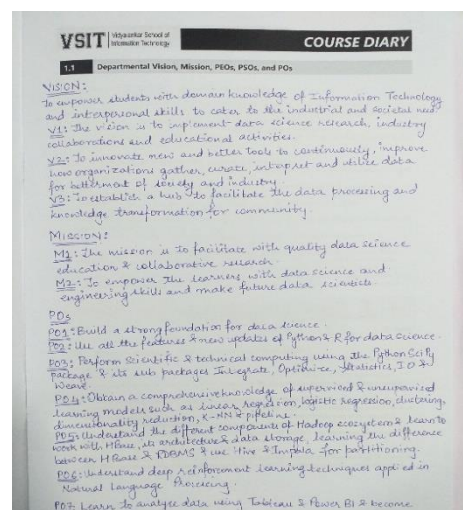 VSIT Vidyalankar School of
Information Technology
COURSE DIARY
1.1 Departmental Vision, Mission, PEOs, PSOs, and POs
VISION:
To empower students with domain knowledge of Information Technology
and interpersonal skills to cater to the industrial and societal need
V1: The vision is to implement data science research, industry
collaborations and educational activities.
V2: To innovate new and better tools to continuously, improve
how organizations gather, curate, interpret and utilize data
for betterment of society and industry.
V3: To establish a hub to facilitate the data processing and
knowledge transformation for community.
MISSION:
M1: The mission is to facilitate with quality data science
education & collaborative research.
M2: To empower the learners with data science and
engineering skills and make future data scientists.
POs
PO1: Build a strong foundation for data science.
PO2: Use all the features & new updates of Python & R for data science.
PO3: Perform Scientific & technical computing using the Python SciPy
package & its sub packages Integrate, Optimize, Statistics, IO &
Weave.
PO4: Obtain a comprehensive knowledge of supervised & unsupervised
learning models such as linear regression, logistic regression, clustering,
dimensionality reduction, K-NN & pipeline.
PO5: Understand the different components of Hadoop ecosystem & learn to
work with HBase, its architecture & data storage, learning the difference
between HBase & RDBMS & use Hive & Impala for partitioning.
PO6: Understand deep reinforcement learning techniques applied in
Natural Language Processing.
PO7: Learn to analyze data using Tableau & Power BI & become